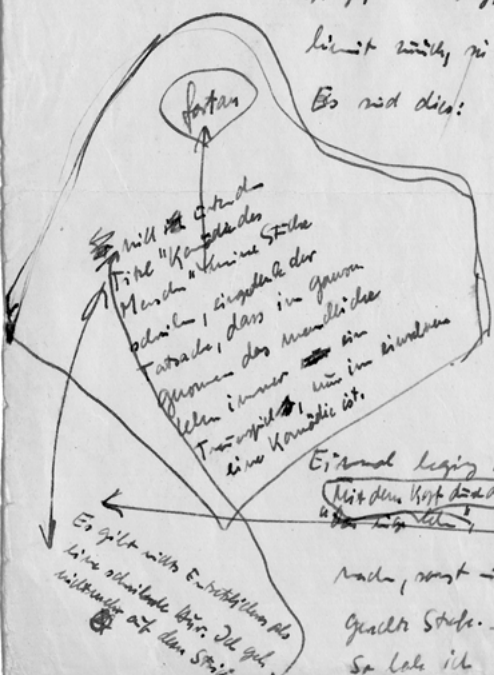 Es sind dies:
fortan
will ich unter dem
Titel "Komödie des
Menschen" meine Stücke
schreiben, eingedenk der
Tatsache, dass im ganzen
genommen das menschliche
Leben immer ein
Trauerspiel, nur im einzelnen
eine Komödie ist.
Einmal beging
Mit dem Kopf durch d
nach, sonst
gerechte Strafe.
So habe ich
Es gibt nichts Entsetzlicheres als
eine schreibende Hure. Ich geh
nichtmehr auf den